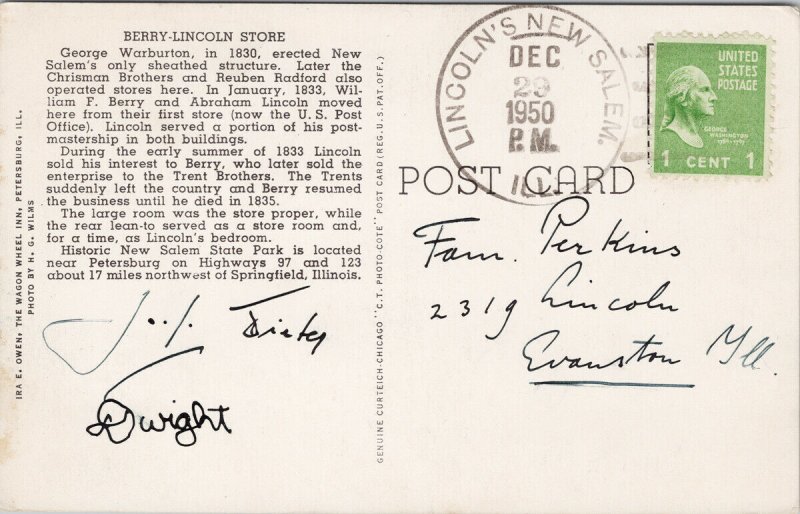 BERRY-LINCOLN STORE
George Warburton, in 1830, erected New
Salem's only sheathed structure. Later the
Chrisman Brothers and Reuben Radford also
operated stores here. In January, 1833, Wil-
liam F. Berry and Abraham Lincoln moved
here from their first store (now the U. S. Post
Office). Lincoln served a portion of his post-
mastership in both buildings.
During the early summer of 1833 Lincoln
sold his interest to Berry, who later sold the
enterprise to the Trent Brothers. The Trents
suddenly left the country and Berry resumed
the business until he died in 1835.
The large room was the store proper, while
the rear lean-to served as a store room and,
for a time, as Lincoln's bedroom.
Historic New Salem State Park is located
near Petersburg on Highways 97 and 123
about 17 miles northwest of Springfield, Illinois.
IRA E. OWEN, THE WAGON WHEEL INN, PETERSBURG, ILL.
PHOTO BY H. G. WILMS
Dwight
GENUINE CURTEICH-CHICAGO "C.T. PHOTO-COTE" POST CARD (REG. U. S. PAT. OFF.)
LINCOLN'S NEW SALEM.
DEC
29
1950
P.M.
ILL.
UNITED
STATES
POSTAGE
GEORGE
WASHINGTON
1789-1797
1 CENT 1
POST CARD
Fam. Perkins
2319 Lincoln
Evanston Ill.